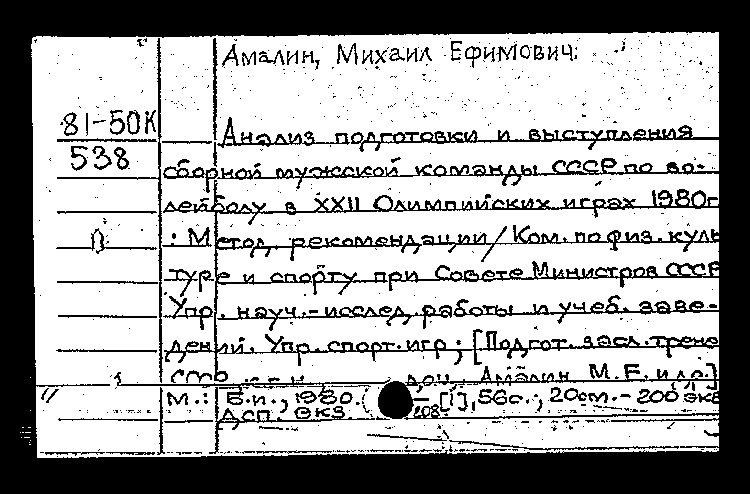 Амалин, Михаил Ефимович.
81-50К
538
Анализ подготовки и выступления
сборной мужской команды СССР по во-
лейболу в XXII Олимпийских играх 1980г
: Метод. рекомендации/Ком. по физ. куль
туре и спорту при Совете Министров СССР
Упр. науч.-исслед. работы и учеб. заве-
дений. Упр. спорт. игр; [Подгот. засл. трене
Амалин М.Е. и др.]
М.: Б.и., 1980. [1], 56с.; 20см. - 200 экз
Дсп. экз.